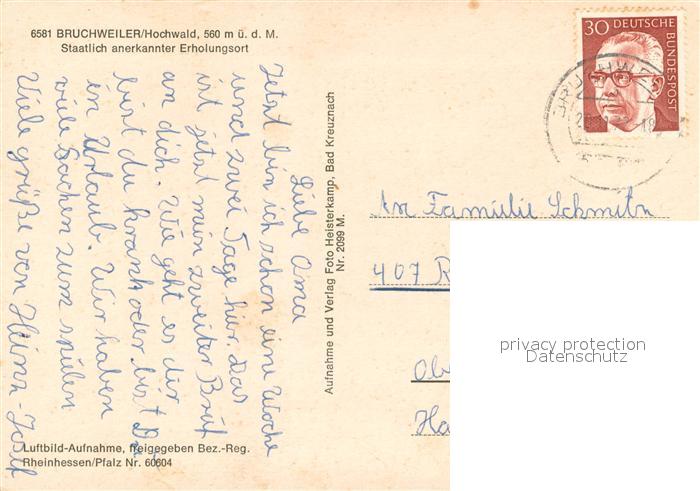 6581 BRUCHWEILER/Hochwald, 560 m ü. d. M.
Staatlich anerkannter Erholungsort
Liebe Oma
Jetzt bin ich schon eine Woche
und zwei Tage hier. Das
ist jetzt mein zweiter Brif
an dich. Wie geht es dir
bist du krank oder bist Du
in Urlaub. Wir haben
viele Sachen zum spielen
Viele grüße von Heinz-Josef
Luftbild-Aufnahme, freigegeben Bez.-Reg.
Rheinhessen/Pfalz Nr. 60604
Aufnahme und Verlag Foto Heisterkamp, Bad Kreuznach
Nr. 2099 M.
30 DEUTSCHE
BUNDESPOST
An Familie Schmitz
407 R
Obe
Ha
privacy protection
Datenschutz